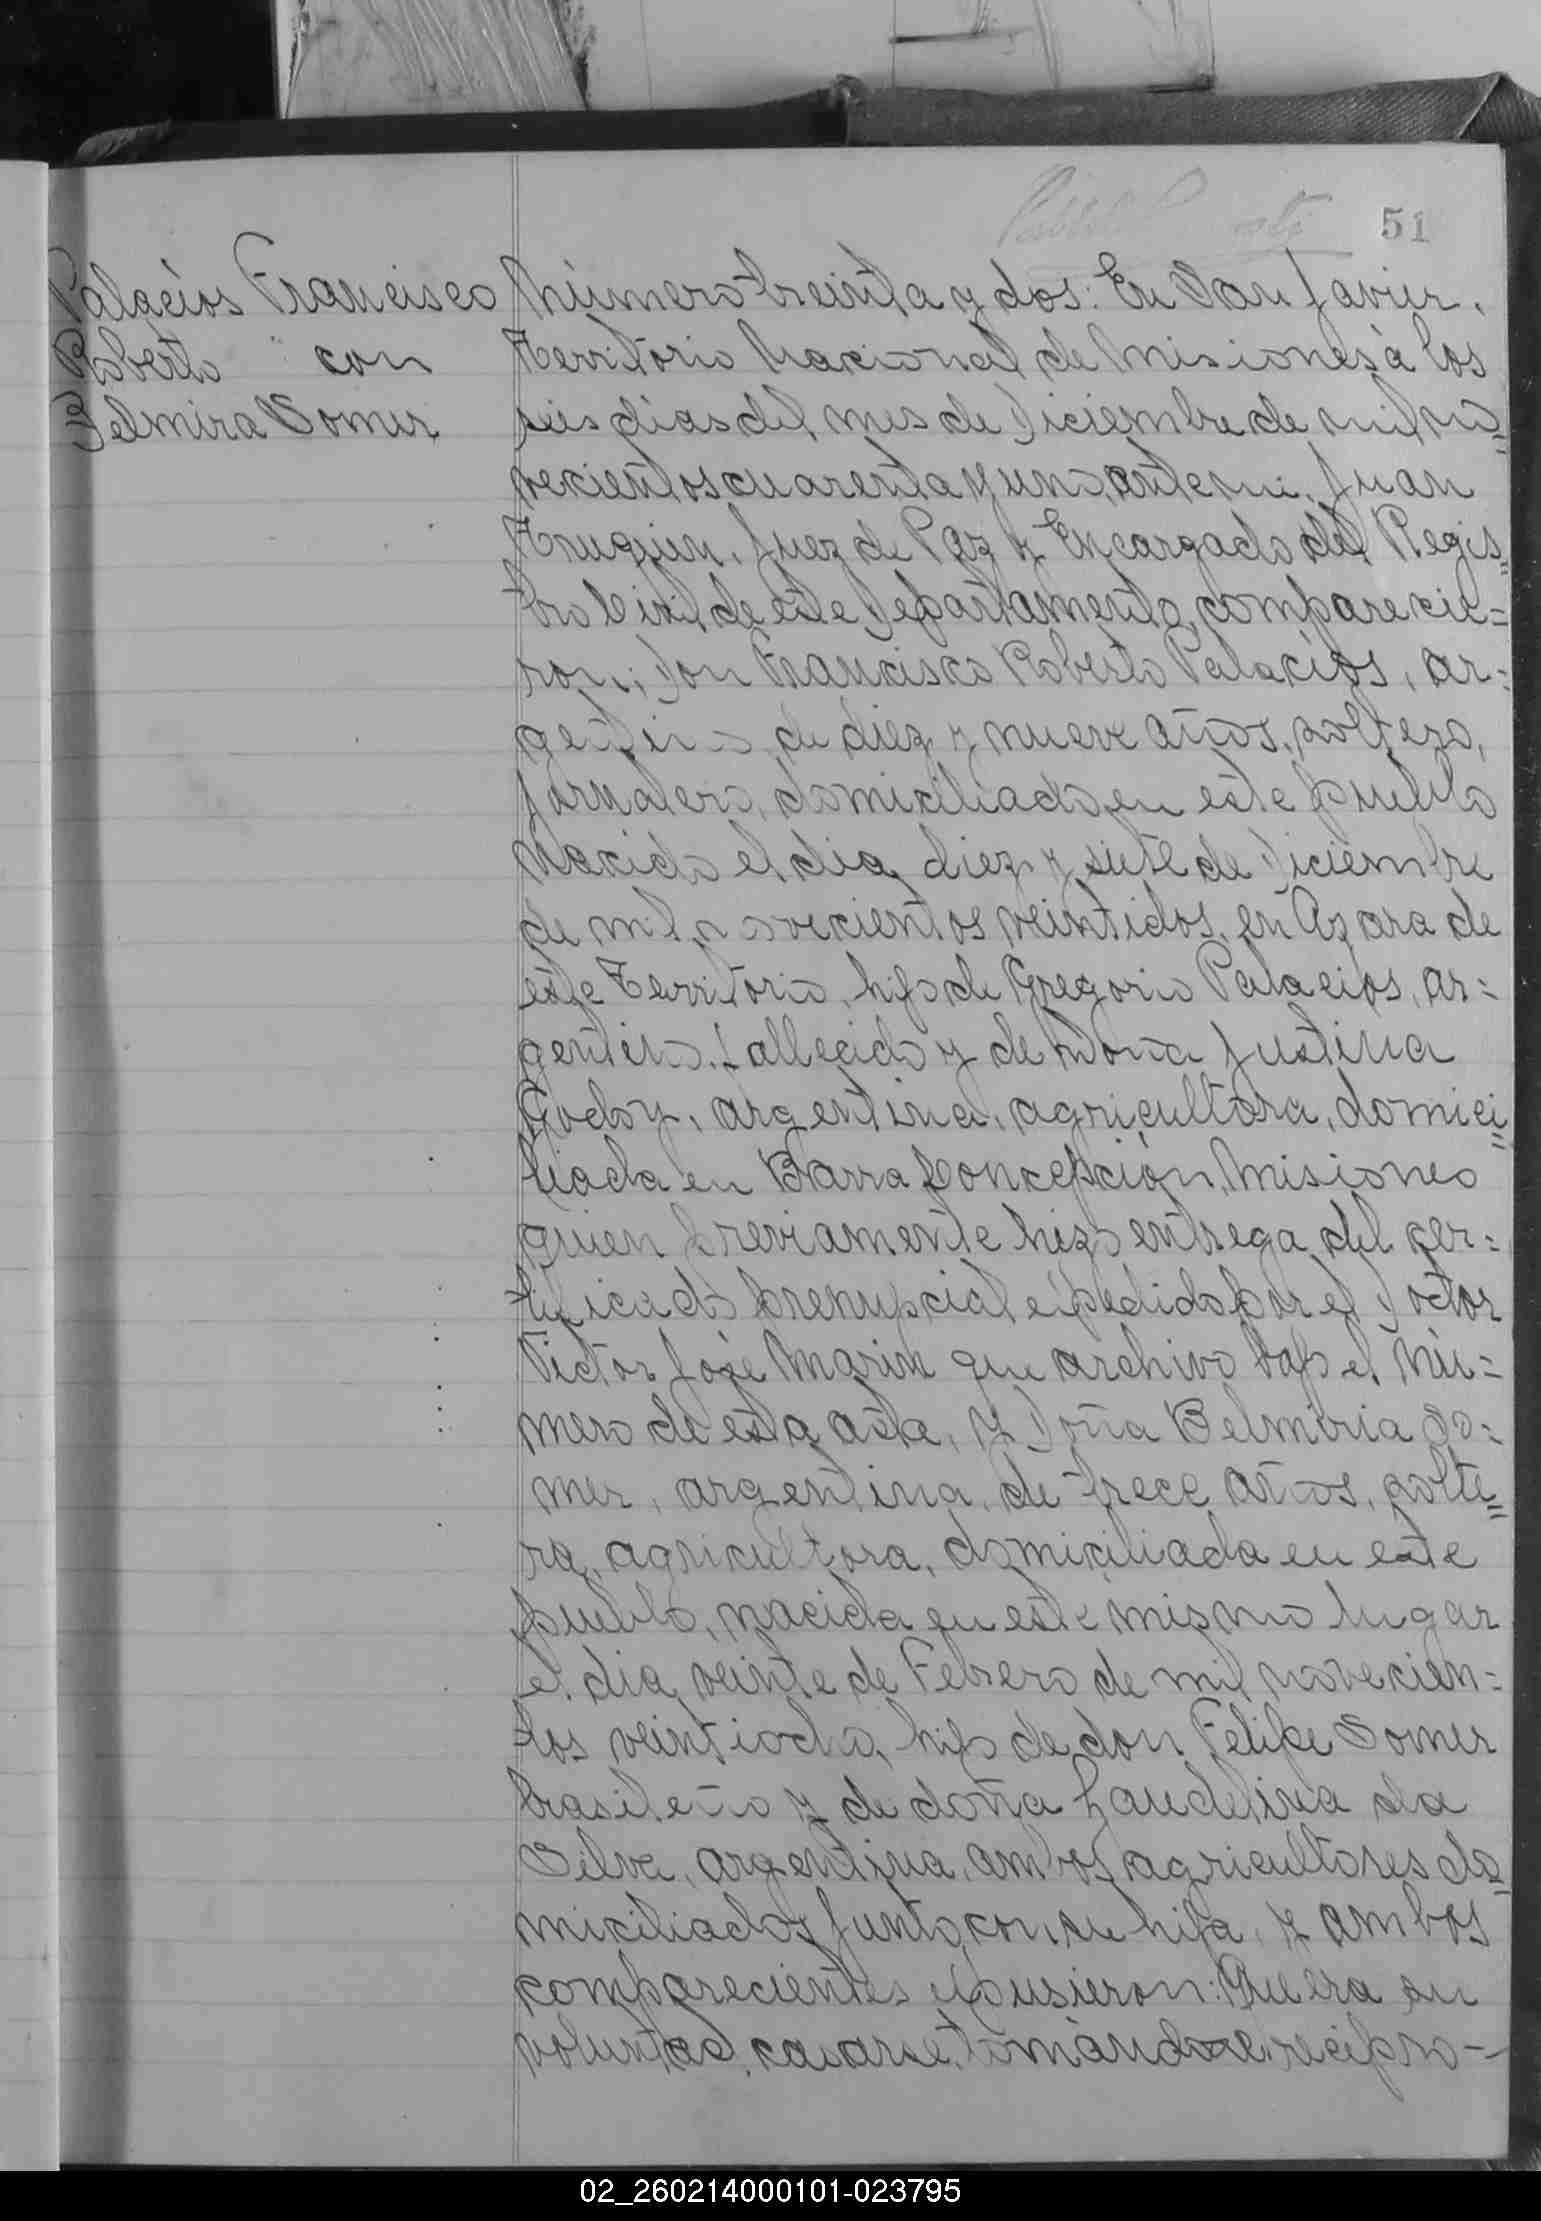 51
Palacios Francisco
Roberto con
Belmira Somer
Número treinta y dos: En San Javier,
Territorio Nacional de Misiones á los
seis días del mes de Diciembre de mil no=
vecientos cuarenta y uno, ante mi, Juan
Juez de Paz y Encargado del Regis=
tro Civil de este Departamento, comparecie=
ron; Don Francisco Roberto Palacios, ar=
gentino, de diez y nueve años, soltero,
jornalero, domiciliado en este pueblo
nacido el dia diez y siete de Diciembre
de mil novecientos veintidos, en Azara de
este Territorio, hijo de Gregorio Palacios, ar=
gentino, fallecido y de Doña Justina
Godoy, argentina, agricultora, domici=
liada en Barra Concepción, Misiones
quien previamente hizo entrega del cer=
tificado prenupcial expedido por el Doctor
Victor José Marin que archivo bajo el nú=
mero de esta acta, y Doña Belmiria So=
mer, argentina, de trece años, solte=
ra, agricultora, domiciliada en este
pueblo, nacida en este mismo lugar
el dia veinte de Febrero de mil novecien=
tos veintiocho, hija de don Felipe Somer
brasileño y de doña Laudelina da
Silva, argentina, ambos agricultores do=
miciliados junto con su hija, y ambos
comparecientes expusieron: Que era su
voluntad casarse, tomándose recipro-
02_260214000101-023795